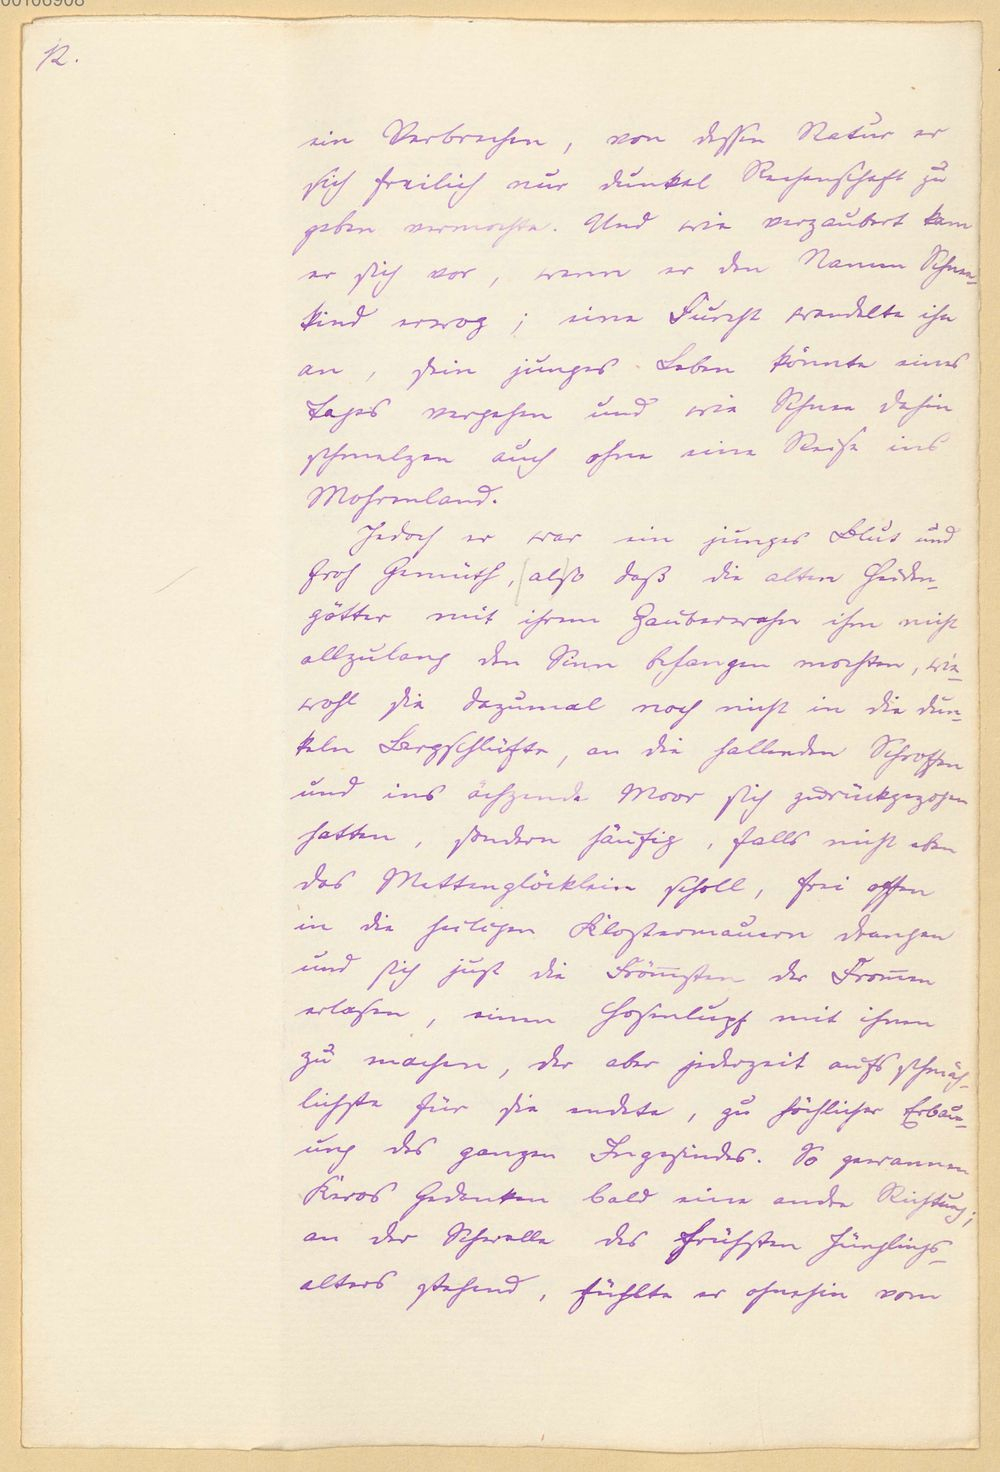 00106908
12.
ein Verbrechen, von dessen Natur er
sich freilich nur dunkel Rechenschaft zu
geben vermochte. Und wie verzaubert kam
er sich vor, wenn er den Namen Schnee-
kind erwog; eine Furcht wandelte ihn
an, sein junges Leben könnte eines
Tages vergehen und wie Schnee dahin
schmelzen auch ohne eine Reise ins
Mohrenland.
Jedoch er war ein junges Blut und
froh Gemüth, also daß die alten Heiden-
götter mit ihrem Zauberwahn ihm nicht
allzulang den Sinn befangen mochten, wie-
wohl sie dazumal noch nicht in die dun-
keln Bergschlüfte, an die hallenden Schroffen
und ins ächzende Moor sich zurückgezogen
hatten, sondern häufig, falls nicht eben
das Mettenglöcklein scholl, frei offen
in die heiligen Klostermauern drangen
und sich just die Frömsten der Fromen
erlasen, einen Hosenlupf mit ihnen
zu machen, der aber jederzeit aufs schmäh-
lichste für sie endete, zu höchlicher Erbau-
ung des ganzen Ingesindes. So gewannen
Keros Gedanken bald eine andre Richtung;
an der Schwelle des frühsten Jünglings-
alters stehend, fühlte er ohnehin vom